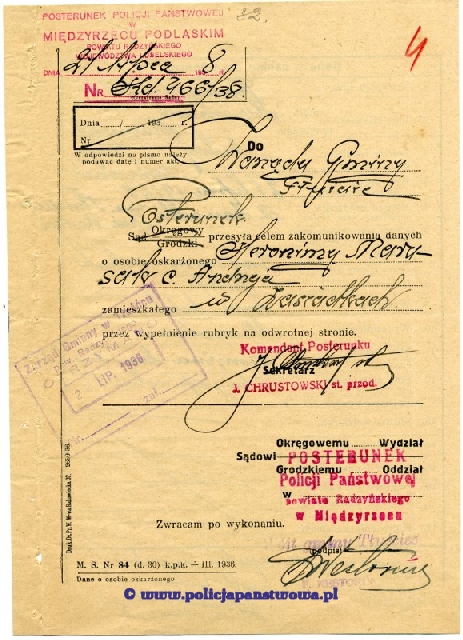 POSTERUNEK POLICJI PAŃSTWOWEJ
w
MIĘDZYRZECU PODLASKIM
POWIATU RADZYŃSKIEGO
WOJEWÓDZTWA LUBELSKIEGO
DNIA 21 lipca 193 8 r.
Nr Kd. 966/38
4
Dnia / 193 r.
Nr
W odpowiedzi na pismo należy
podawać datę i numer akt.
Do
Zarządu Gminy
Posterunek
Sąd Okręgowy
Grodzki przesyła celem zakomunikowania danych
o osobie oskarżonego
c. Andrzeja
zamieszkałego w Zasiadkach
przez wypełnienie rubryk na odwrotnej stronie.
Komendant Posterunku
Sekretarz
J. CHRUSTOWSKI st. przod.
2 LIP. 1938
Okręgowemu Wydział
Sądowi
Grodzkiemu Oddział
POSTERUNEK
Policji Państwowej
w powiecie Radzyńskiego
w Międzyrzecu
Zwracam po wykonaniu.
(podpis)
M. S. Nr 84 (d. 30) k.p.k. — III. 1936.
Dane o osobie oskarżonego
© www.policjapanstwowa.pl